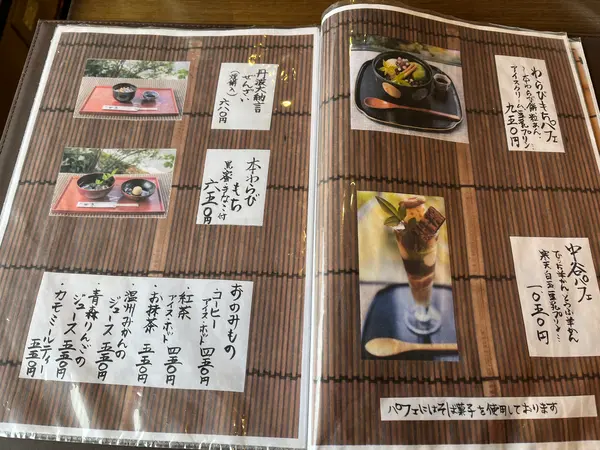 丹波大納言
ぜんざい
(焼餅入) 六八〇円
本わらび
もち
黒蜜きなこ付
六五〇円
おのみもの
・コーヒー
アイス・ホット 四五〇円
・紅茶
アイス・ホット 四五〇円
・お抹茶 五五〇円
・温州みかんの
ジュース 五五〇円
・青森りんごの
ジュース 五五〇円
・カモミールティー
五五〇円
わらびもちパフェ
アイスクリーム豆乳プリン
九五〇円
中谷パフェ
寒天白玉豆乳プリン…
一〇五〇円
パフェにはそば菓子を使用しております